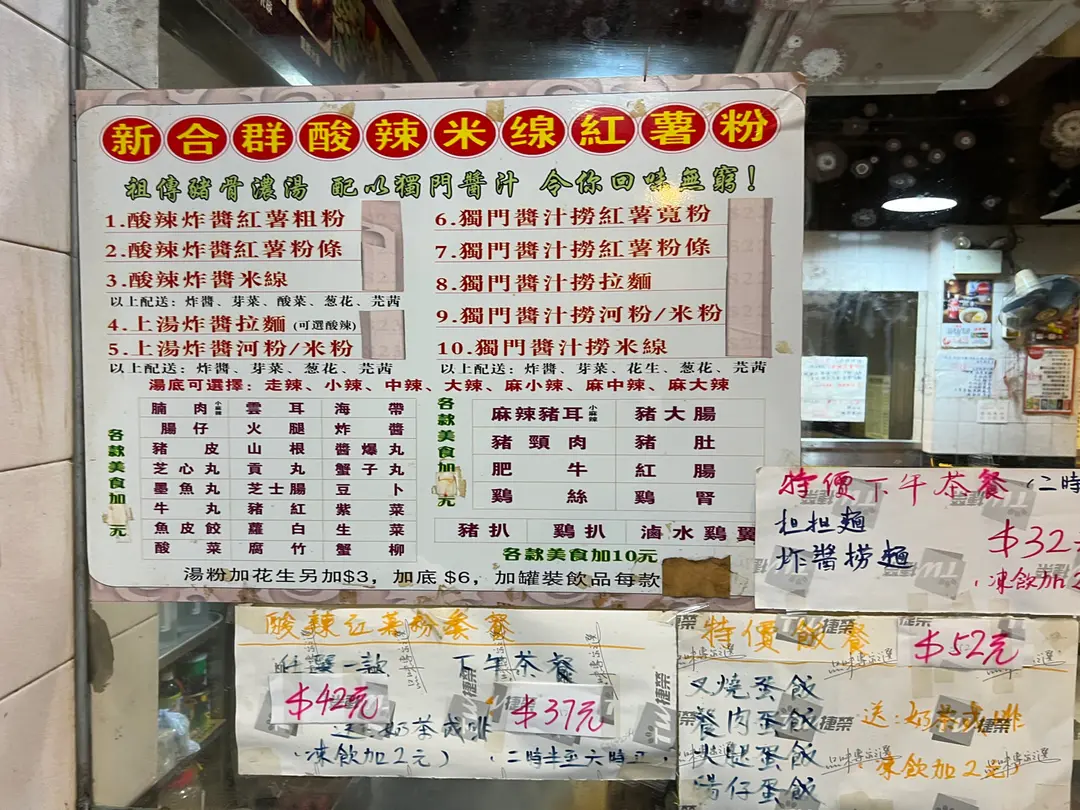 新合群酸辣米线紅薯粉
祖傳豬骨濃湯 配以獨門醬汁 令你回味無窮!
1.酸辣炸醬紅薯粗粉
2.酸辣炸醬紅薯粉條
3.酸辣炸醬米線
以上配送: 炸醬、芽菜、酸菜、葱花、芫茜
4.上湯炸醬拉麵 (可選酸辣)
5.上湯炸醬河粉/米粉
以上配送: 炸醬、芽菜、葱花、芫茜
6.獨門醬汁撈紅薯寬粉
7.獨門醬汁撈紅薯粉條
8.獨門醬汁撈拉麵
9.獨門醬汁撈河粉/米粉
10.獨門醬汁撈米線
以上配送: 炸醬、芽菜、花生、葱花、芫茜
湯底可選擇: 走辣、小辣、中辣、大辣、麻小辣、麻中辣、麻大辣
各款美食加 元
腩肉 小麻辣 雲耳 海帶
腸仔 火腿 炸醬
豬皮 山根 醬爆丸
芝心丸 貢丸 蟹子丸
墨魚丸 芝士腸 豆卜
牛丸 豬紅 紫菜
魚皮餃 蘿白 生菜
酸菜 腐竹 蟹柳
各款美食加 元
麻辣豬耳 小麻辣 豬大腸
豬頸肉 豬肚
肥牛 紅腸
鷄絲 鷄腎
豬扒 鷄扒 滷水鷄翼
各款美食加10元
湯粉加花生另加$3, 加底 $6, 加罐裝飲品每款
特價下午茶餐 (二時
担担麵
炸醬撈麵
$32
凍飲加2
酸辣红薯粉套餐
任選一款
$42元
下午茶餐
$37元
送: 奶茶或啡
凍飲加2元)
二時半至六時
特價飯餐
$52元
叉燒蛋飯
餐肉蛋飯
火腿蛋飯
腸仔蛋飯
送: 奶茶或啡
凍飲加2元
捷榮